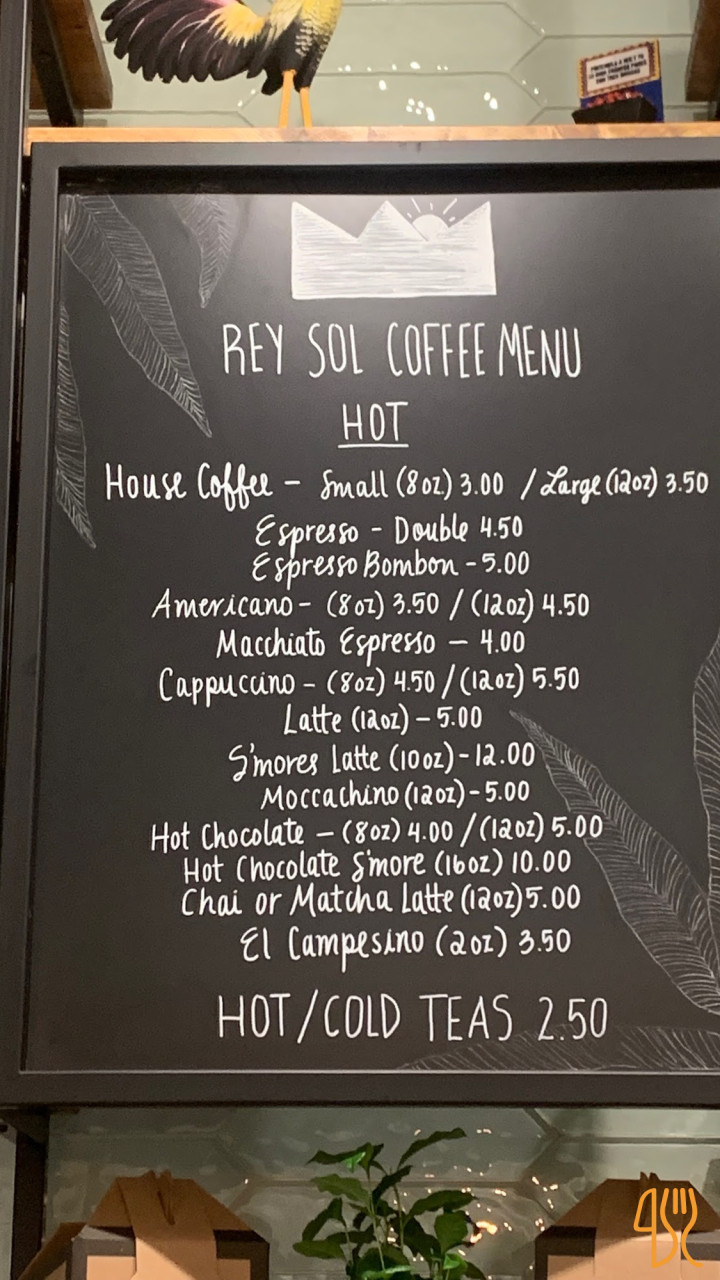 REY SOL COFFEE MENU
HOT
House Coffee - Small (8oz.) 3.00 / Large (12oz) 3.50
Espresso - Double 4.50
Espresso Bombon - 5.00
Americano - (8oz) 3.50 / (12oz) 4.50
Macchiato Espresso - 4.00
Cappuccino - (8oz) 4.50 / (12oz) 5.50
Latte (12oz) - 5.00
S'mores Latte (10oz) - 12.00
Moccachino (12oz) - 5.00
Hot Chocolate - (8oz) 4.00 / (12oz) 5.00
Hot Chocolate S'more (16oz) 10.00
Chai or Matcha Latte (12oz) 5.00
El Campesino (2oz) 3.50
HOT/COLD TEAS 2.50